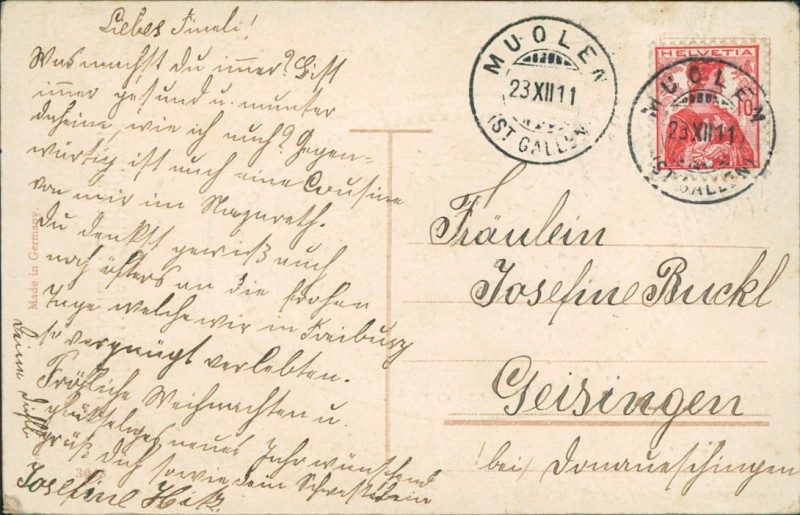 Liebes Fineli!
Was machst du immer? Bist
immer gesund u. munter
daheim, wie ich auch? Gegen-
wärtig ist auch eine Cousine
von mir im Nazareth.
Du denkst gewiß auch
noch öfters an die frohen
Tage welche wir in Freiburg
so vergnügt verlebten.
Fröhliche Weihnachten u.
glückseliges neues Jahr wünschend
grüßt dich sowie dein Schwesterlein
Josefine
Deine
Made in Germany.
MUOLEN
23 XII 11
(ST GALLEN)
HELVETIA
10
MUOLEN
23 XII 11
(ST GALLEN)
Fräulein
Josefine Buckl
Geisingen
bei Donaueschingen